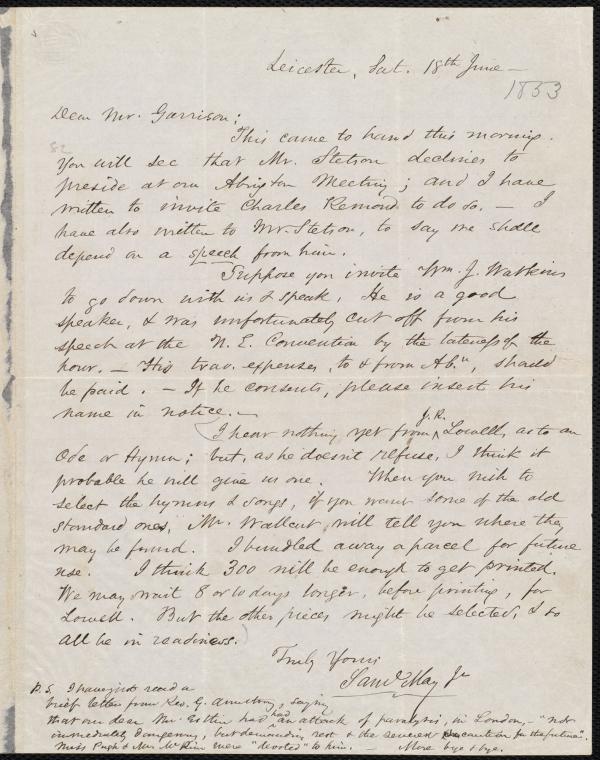 Leicester, Sat. 18th June -
1853
Dear Mr. Garrison;
82
This came to hand this morning.
You will see that Mr. Stetson declines to
preside at our Abington Meeting; and I have
written to invite Charles Remond to do so. - I
have also written to Mr. Stetson, to say we shall
depend on a speech from him.
Suppose you invite Wm. J. Watkins
to go down with us & speak. He is a good
speaker, & was unfortunately cut off from his
speech at the N. E. Convention by the lateness of the
hour. - His trav. expenses, to & from Ab.n, should
be paid. - If he consents, please insert his
name in notice. -
I hear nothing yet from J.R. Lowell, as to an
Ode or Hymn; but, as he doesn't refuse, I think it
probable he will give us one. When you wish to
select the hymns & songs, if you want some of the old
standard ones, Mr. Wallcut will tell you where they
may be found. I bundled away a parcel for future
use. I think 300 will be enough to get printed.
We may wait 8 or 10 days longer, before printing, for
Lowell. But the other pieces might be selected, & so
all be in readiness.
Truly Yours
Saml. May Jr
P.S. I have just read a
brief letter from Geo. G. Armstrong, saying
that our dear Mr. Estlin had had an attack of paralysis, in London, - "not
immediately dangerous, but demanding rest & the severest precaution for the future".
Miss Pugh & Mrs. McKim were "devoted" to him. - More bye & bye.